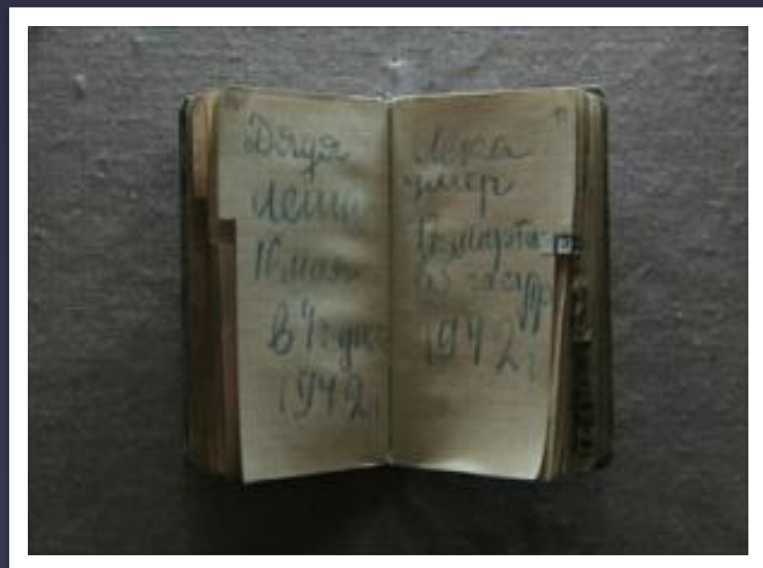 Дядя
Леша
10 мая
в 4 ч дня
1942
Лека
умер
марта
1942 г